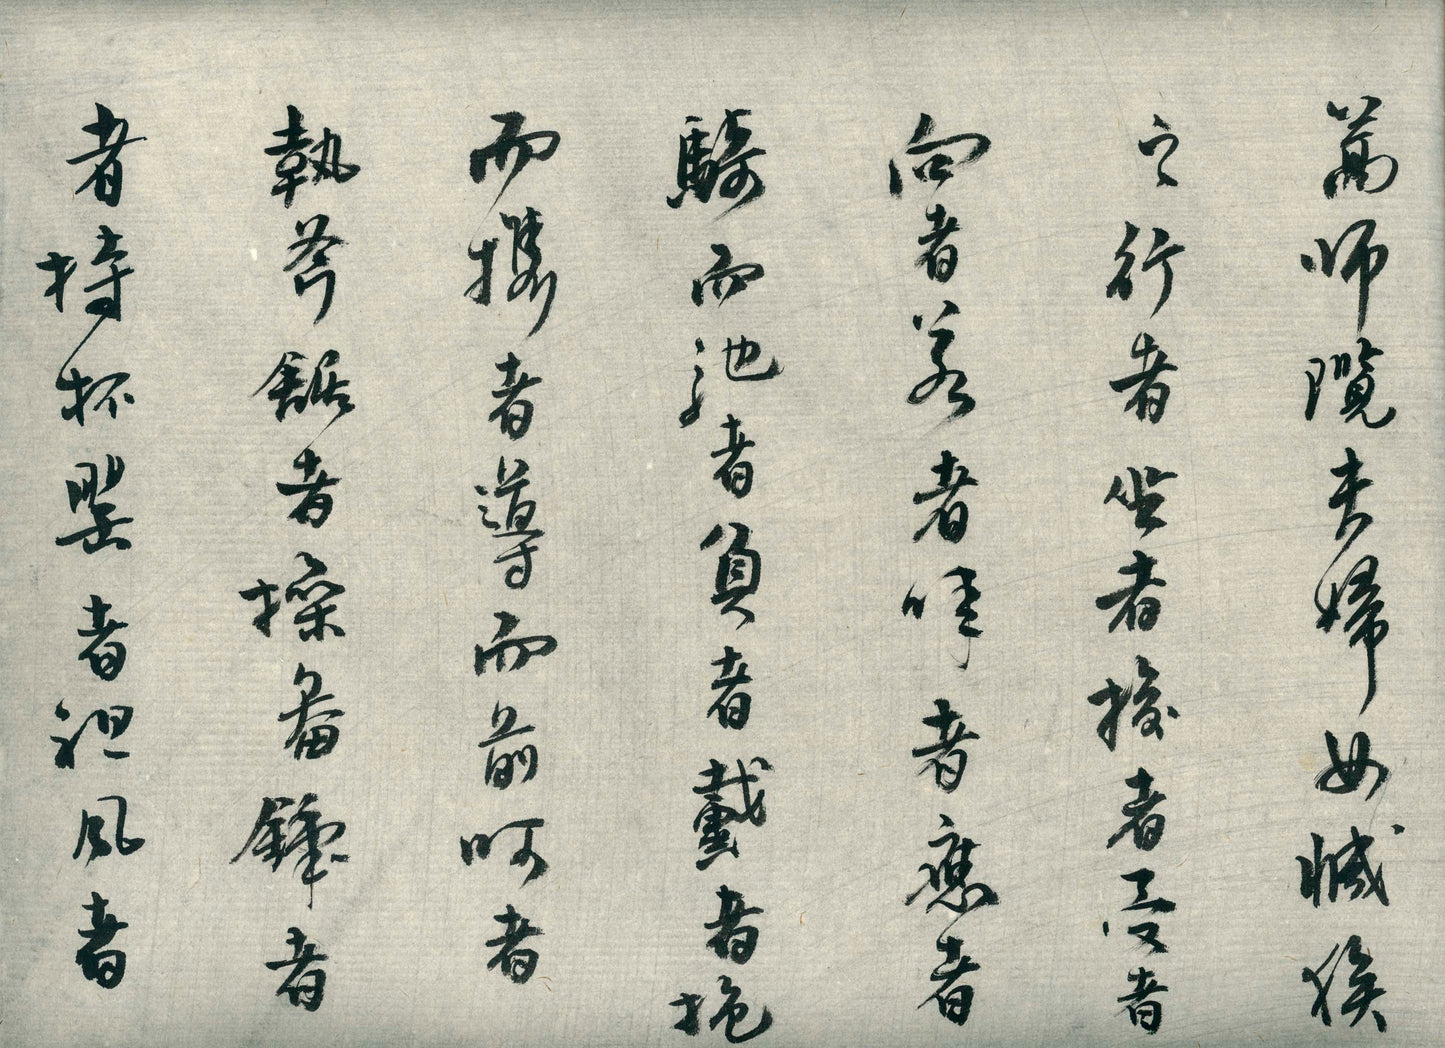 篙師纜夫婦女臧獲
之行者坐者授者受者
問者答者呼者應者
騎而馳者負者戴者抱
而攜者導而前呵者
執斧鋸者操畚鍤者
者持杯罌者袒風者